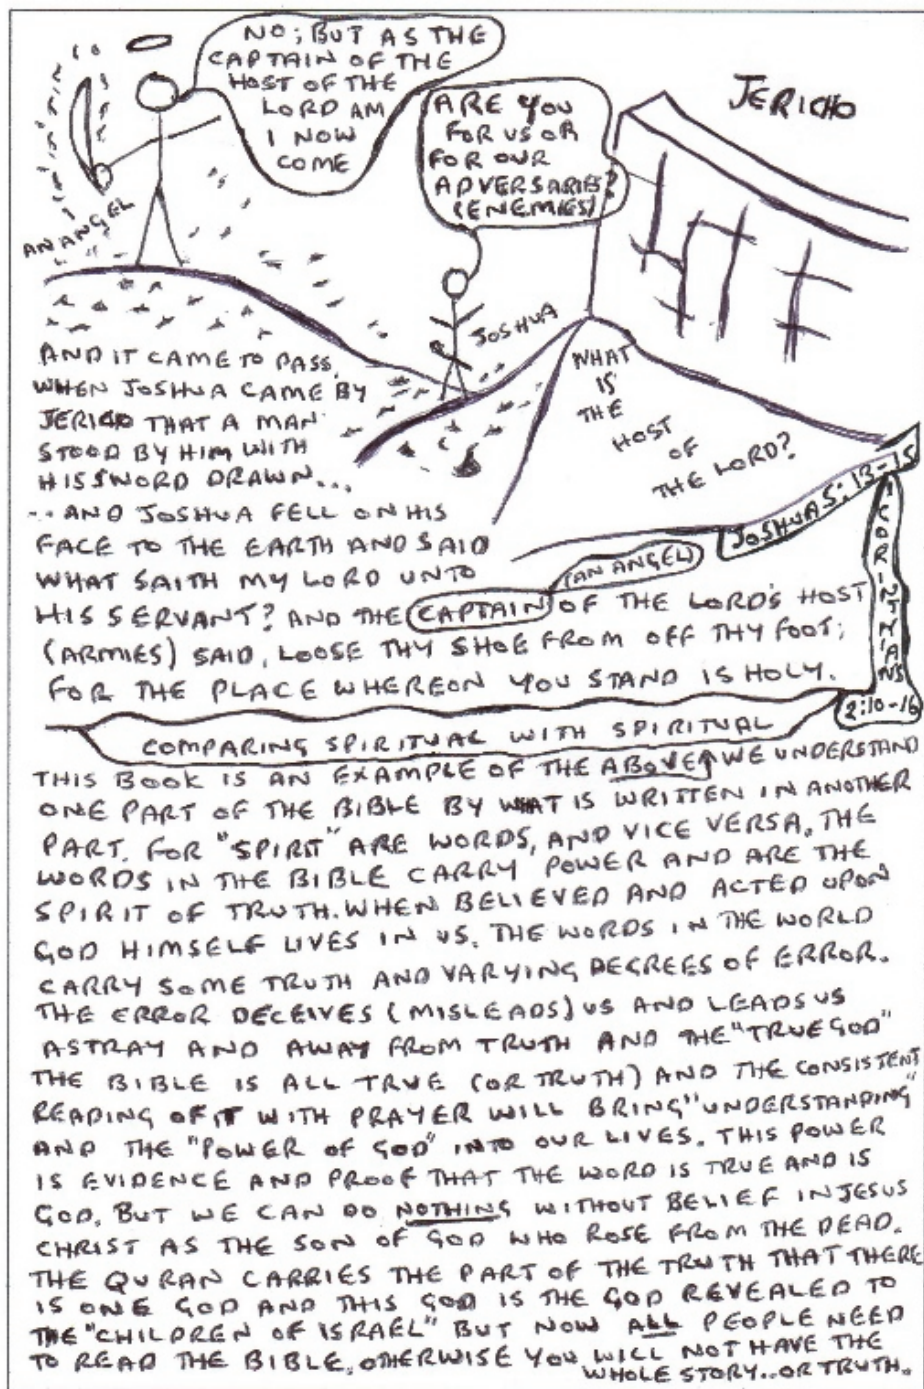 NO; BUT AS THE
CAPTAIN OF THE
HOST OF THE
LORD AM
I NOW
COME
ARE YOU
FOR US OR
FOR OUR
ADVERSARIES?
(ENEMIES)
JERICHO
AN ANGEL
JOSHUA
WHAT
IS
THE
HOST
OF
THE LORD?
AND IT CAME TO PASS,
WHEN JOSHUA CAME BY
JERICHO THAT A MAN
STOOD BY HIM WITH
HIS SWORD DRAWN...
...AND JOSHUA FELL ON HIS
FACE TO THE EARTH AND SAID
WHAT SAITH MY LORD UNTO
HIS SERVANT? AND THE CAPTAIN OF THE LORD'S HOST
(AN ANGEL)
(ARMIES) SAID, LOOSE THY SHOE FROM OFF THY FOOT;
FOR THE PLACE WHEREON YOU STAND IS HOLY.
JOSHUA 5:13-15
I CORINTHIANS
2:10-16
COMPARING SPIRITUAL WITH SPIRITUAL
THIS BOOK IS AN EXAMPLE OF THE ABOVE↑ WE UNDERSTAND
ONE PART OF THE BIBLE BY WHAT IS WRITTEN IN ANOTHER
PART. FOR "SPIRIT" ARE WORDS, AND VICE VERSA. THE
WORDS IN THE BIBLE CARRY POWER AND ARE THE
SPIRIT OF TRUTH. WHEN BELIEVED AND ACTED UPON
GOD HIMSELF LIVES IN US. THE WORDS IN THE WORLD
CARRY SOME TRUTH AND VARYING DEGREES OF ERROR.
THE ERROR DECEIVES (MISLEADS) US AND LEADS US
ASTRAY AND AWAY FROM TRUTH AND THE "TRUE GOD"
THE BIBLE IS ALL TRUE (OR TRUTH) AND THE CONSISTENT
READING OF IT WITH PRAYER WILL BRING "UNDERSTANDING"
AND THE "POWER OF GOD" INTO OUR LIVES. THIS POWER
IS EVIDENCE AND PROOF THAT THE WORD IS TRUE AND IS
GOD. BUT WE CAN DO NOTHING WITHOUT BELIEF IN JESUS
CHRIST AS THE SON OF GOD WHO ROSE FROM THE DEAD.
THE QURAN CARRIES THE PART OF THE TRUTH THAT THERE
IS ONE GOD AND THIS GOD IS THE GOD REVEALED TO
THE "CHILDREN OF ISRAEL" BUT NOW ALL PEOPLE NEED
TO READ THE BIBLE. OTHERWISE YOU WILL NOT HAVE THE
WHOLE STORY..OR TRUTH.